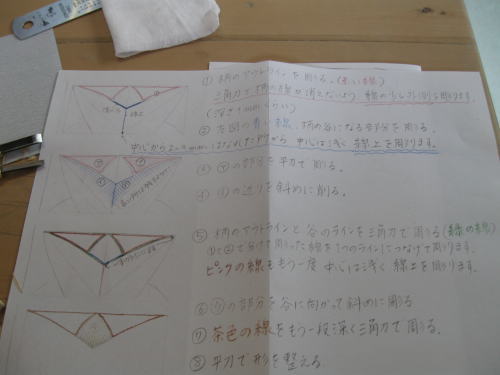 ① 柄のアウトラインを彫る。(赤い線)
三角刀で 柄の線が消えないよう 線の少し外側を彫ります。
(深さ1mmくらい)
② 左図の青い線、柄の谷になる部分を彫る。
中心から2〜3mmはなれた所から 中心は浅く 線上を彫ります。
の部分を平刀で彫る。
の辺りを斜めに削る。
⑤ 柄のアウトラインと谷のラインを三角刀で彫る(緑の線)
①と②で分けて彫った線を1つのラインにつなげて彫ります。
ピンクの線をもう一度 中心は浅く 線上を彫ります。
⑥ の部分を谷に向かって斜めに彫る
⑦ 茶色の線をもう一段深く三角刀で彫る。
⑧ 平刀で形を整える。